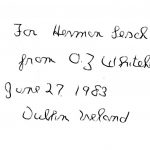 For Herman Lesch
from O. Z Whiteh
June 27 1983
Dublin Ireland